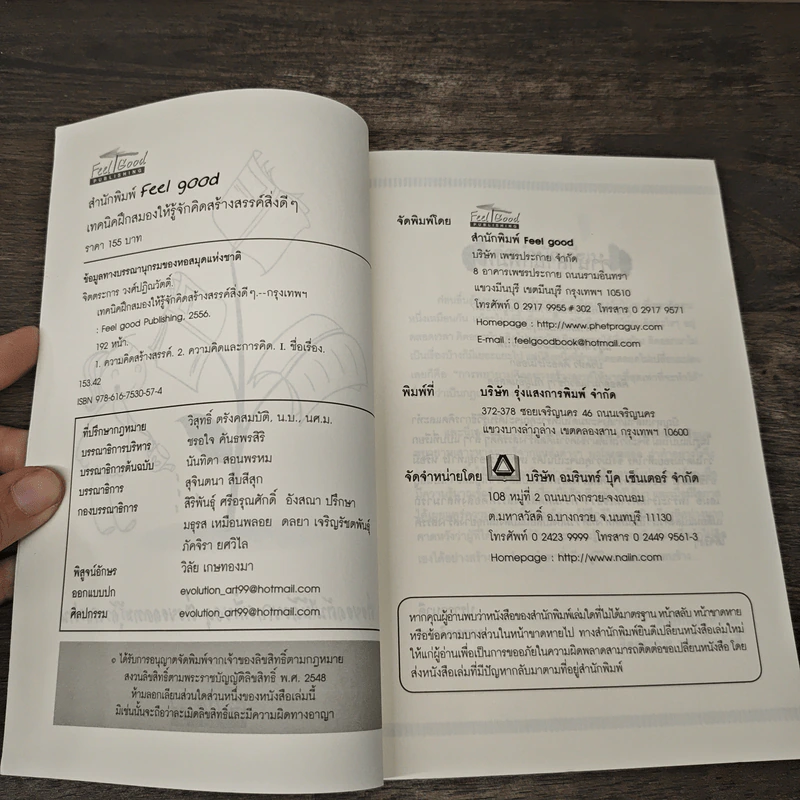 Feel Good
PUBLISHING
สำนักพิมพ์ Feel good
เทคนิคฝึกสมองให้รู้จักคิดสร้างสรรค์สิ่งดีๆ
ราคา 155 บาท
ข้อมูลทางบรรณานุกรมของหอสมุดแห่งชาติ
จิตตระการ วงศ์ปฏิณวัตติ์.
เทคนิคฝึกสมองให้รู้จักคิดสร้างสรรค์สิ่งดีๆ.--กรุงเทพฯ
: Feel good Publishing, 2556.
192 หน้า.
1. ความคิดสร้างสรรค์. 2. ความคิดและการคิด. I. ชื่อเรื่อง.
153.42
ISBN 978-616-7530-57-4
ที่ปรึกษากฎหมาย วิสุทธิ์ ตรังคสมบัติ, น.บ., นศ.ม.
บรรณาธิการบริหาร ชรอใจ คันธพรสิริ
บรรณาธิการต้นฉบับ นันทิดา สอนพรหม
บรรณาธิการ สุจินตนา สืบสีสุก
กองบรรณาธิการ สิริพันธุ์ ศรีอรุณศักดิ์ อังสณา ปรึกษา
มธุรส เหมือนพลอย ดลยา เจริญรัชตพันธุ์
ภัคจิรา ยศวิไล
พิสูจน์อักษร วิลัย เกษทองมา
ออกแบบปก evolution_art99@hotmail.com
ศิลปกรรม evolution_art99@hotmail.com
๏ ได้รับการอนุญาตจัดพิมพ์จากเจ้าของลิขสิทธิ์ตามกฎหมาย
สงวนลิขสิทธิ์ตามพระราชบัญญัติลิขสิทธิ์ พ.ศ. 2548
ห้ามลอกเลียนส่วนใดส่วนหนึ่งของหนังสือเล่มนี้
มิเช่นนั้นจะถือว่าละเมิดลิขสิทธิ์และมีความผิดทางอาญา
จัดพิมพ์โดย Feel Good
PUBLISHING
สำนักพิมพ์ Feel good
บริษัท เพชรประกาย จำกัด
8 อาคารเพชรประกาย ถนนรามอินทรา
แขวงมีนบุรี เขตมีนบุรี กรุงเทพฯ 10510
โทรศัพท์ 0 2917 9955 # 302 โทรสาร 0 2917 9571
Homepage : http://www.phetpraguy.com
E-mail : feelgoodbook@hotmail.com
พิมพ์ที่ บริษัท รุ่งแสงการพิมพ์ จำกัด
372-378 ซอยเจริญนคร 46 ถนนเจริญนคร
แขวงบางลำภูล่าง เขตคลองสาน กรุงเทพฯ 10600
จัดจำหน่ายโดย บริษัท อมรินทร์ บุ๊ค เซ็นเตอร์ จำกัด
108 หมู่ที่ 2 ถนนบางกรวย-จงถนอม
ต.มหาสวัสดิ์ อ.บางกรวย จ.นนทบุรี 11130
โทรศัพท์ 0 2423 9999 โทรสาร 0 2449 9561-3
Homepage : http://www.naiin.com
หากคุณผู้อ่านพบว่าหนังสือของสำนักพิมพ์เล่มใดที่ไม่ได้มาตรฐาน หน้าสลับ หน้าขาดหาย
หรือข้อความบางส่วนในหน้าขาดหายไป ทางสำนักพิมพ์ยินดีเปลี่ยนหนังสือเล่มใหม่
ให้แก่ผู้อ่านเพื่อเป็นการขออภัยในความผิดพลาดสามารถติดต่อขอเปลี่ยนหนังสือ โดย
ส่งหนังสือเล่มที่มีปัญหากลับมาตามที่อยู่สำนักพิมพ์